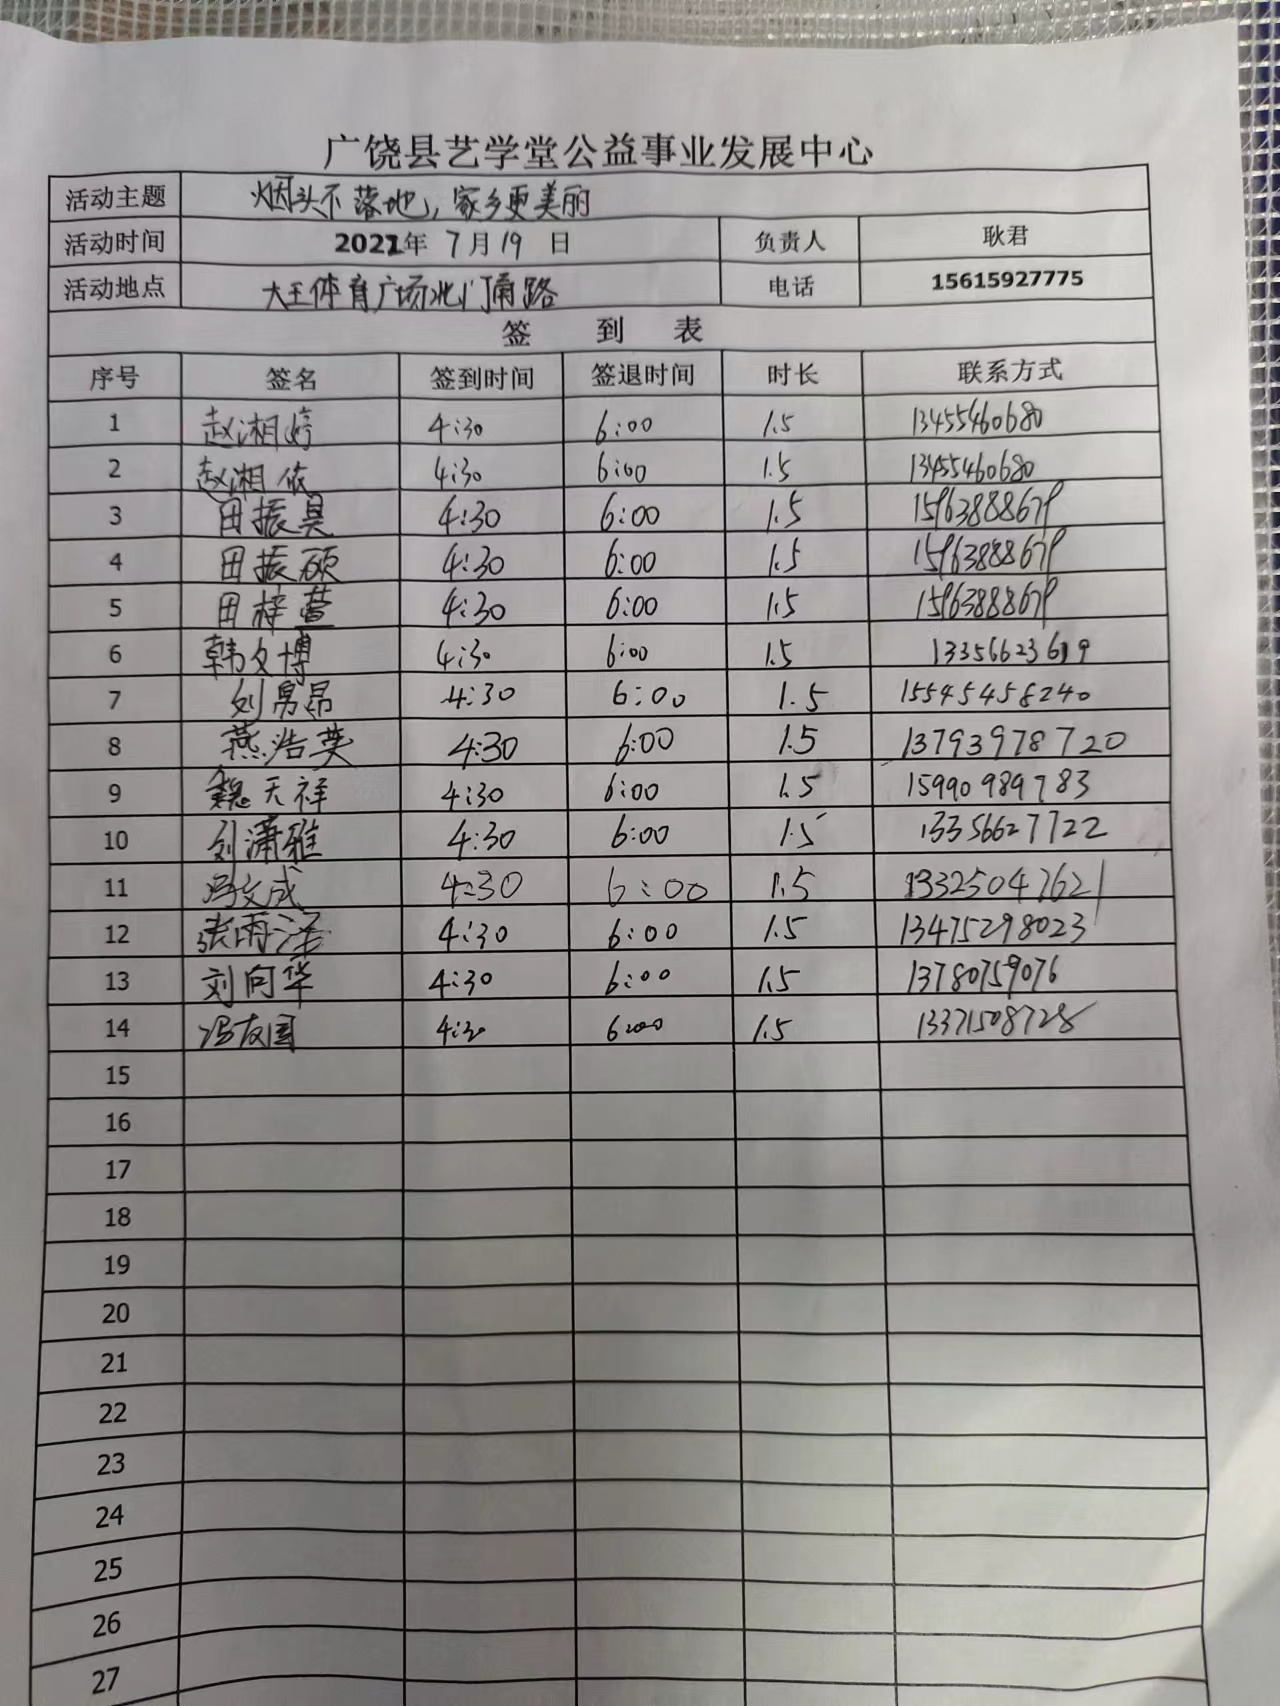 广饶县艺学堂公益事业发展中心
活动主题 烟头不落地，家乡更美丽
活动时间 2022年 7月19 日 负责人 耿君
活动地点 大王体育广场北门甬路 电话 15615927775
签 到 表
序号 签名 签到时间 签退时间 时长 联系方式
1 赵湘婷 4:30 6:00 1.5 13455460680
2 赵湘依 4:30 6:00 1.5 13455460680
3 田振昊 4:30 6:00 1.5 15963888679
4 田振硕 4:30 6:00 1.5 15963888679
5 田梓萱 4:30 6:00 1.5 15963888679
6 韩文博 4:30 6:00 1.5 13356623619
7 刘 昂 4:30 6:00 1.5 15545458240
8 燕浩英 4:30 6:00 1.5 13793978720
9 魏天祥 4:30 6:00 1.5 15990989783
10 刘潇雅 4:30 6:00 1.5 13356627722
11 冯文成 4:30 6:00 1.5 13325047621
12 张雨泽 4:30 6:00 1.5 13475298023
13 刘向华 4:30 6:00 1.5 13780759076
14 冯友国 4:30 6:00 1.5 13371508728
15
16
17
18
19
20
21
22
23
24
25
26
27